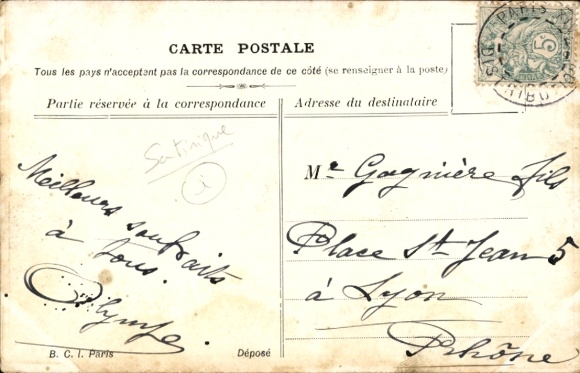 CARTE POSTALE
Tous les pays n'acceptent pas la correspondance de ce côté (se renseigner à la poste)
Partie réservée à la correspondance
Adresse du destinataire
Meilleurs souhaits
à tous.
Olympe.
Mr Gagnière fils
Place St Jean 5
à Lyon
Rhône
B. C. I. Paris
Déposé
5
PARIS
DISTRIBUTION